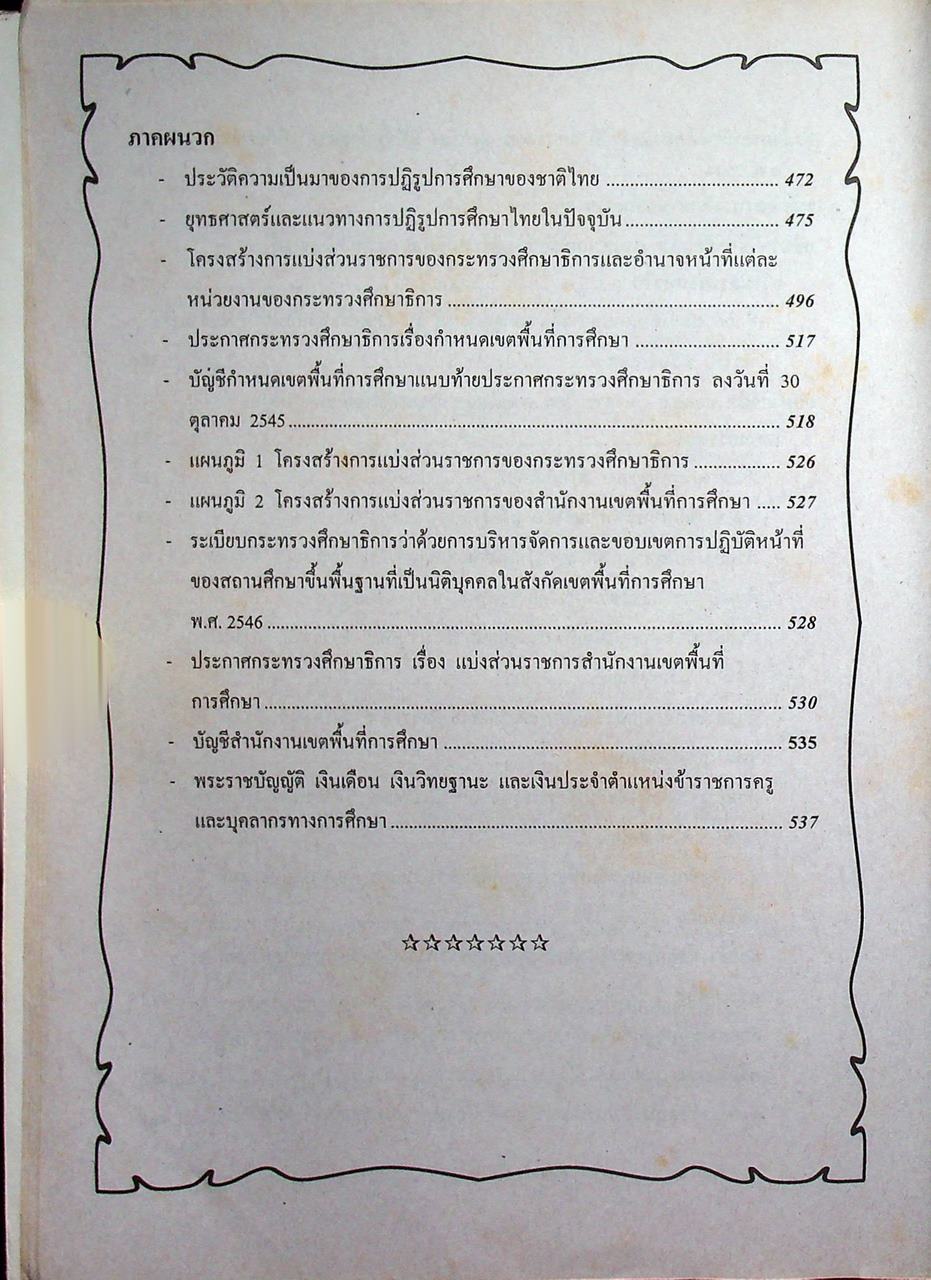 ภาคผนวก
- ประวัติความเป็นมาของการปฏิรูปการศึกษาของชาติไทย .................................. 472
- ยุทธศาสตร์และแนวทางการปฏิรูปการศึกษาไทยในปัจจุบัน ............................... 475
- โครงสร้างการแบ่งส่วนราชการของกระทรวงศึกษาธิการและอำนาจหน้าที่แต่ละ
หน่วยงานของกระทรวงศึกษาธิการ .................................................................. 496
- ประกาศกระทรวงศึกษาธิการเรื่องกำหนดเขตพื้นที่การศึกษา ............................. 517
- บัญชีกำหนดเขตพื้นที่การศึกษาแนบท้ายประกาศกระทรวงศึกษาธิการ ลงวันที่ 30
ตุลาคม 2545 .................................................................................................. 518
- แผนภูมิ 1 โครงสร้างการแบ่งส่วนราชการของกระทรวงศึกษาธิการ ................. 526
- แผนภูมิ 2 โครงสร้างการแบ่งส่วนราชการของสำนักงานเขตพื้นที่การศึกษา ..... 527
- ระเบียบกระทรวงศึกษาธิการว่าด้วยการบริหารจัดการและขอบเขตการปฏิบัติหน้าที่
ของสถานศึกษาขึ้นพื้นฐานที่เป็นนิติบุคคลในสังกัดเขตพื้นที่การศึกษา
พ.ศ. 2546 ...................................................................................................... 528
- ประกาศกระทรวงศึกษาธิการ เรื่อง แบ่งส่วนราชการสำนักงานเขตพื้นที่
การศึกษา ....................................................................................................... 530
- บัญชีสำนักงานเขตพื้นที่การศึกษา ................................................................... 535
- พระราชบัญญัติ เงินเดือน เงินวิทยฐานะ และเงินประจำตำแหน่งข้าราชการครู
และบุคลากรทางการศึกษา .............................................................................. 537
☆☆☆☆☆☆☆